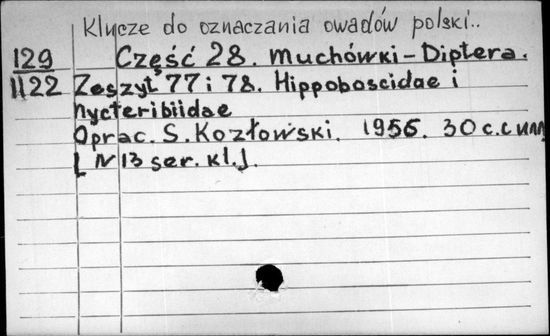 Klucze do oznaczania owadów polski..
129 Część 28. Muchówki-Diptera.
1122 Zeszyt 77 i 78. Hippoboscidae i
Nycteribiidae
Oprac. S. Kozłowski. 1956. 30 с. с илл
[N 13 ser. kl.].